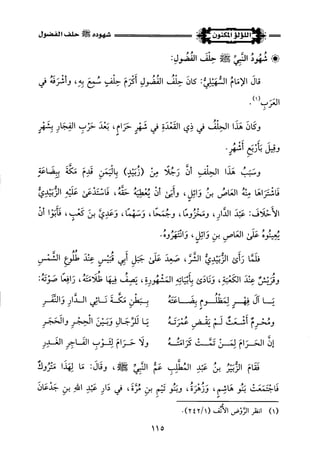 اللؤلؤ المكنون شهوده ﷺ حلف الفضول
شُهُودُ النَّبِيِّ ﷺ حِلْفَ الفُضُولِ:
قَالَ الإِمَامُ السُّهَيْلِيُّ: كَانَ حِلْفُ الفُضُولِ أَكْرَمَ حِلْفٍ سُمِعَ بِهِ، وأَشْرَفَهُ فِي
العَرَبِ(١).
وكَانَ هَذَا الحِلْفُ فِي ذِي القَعْدَةِ فِي شَهْرٍ حَرَامٍ، بَعْدَ حَرْبِ الفِجَارِ بِشَهْرٍ
وقِيلَ بِأَرْبَعِ أَشْهُرٍ.
وسَبَبُ هَذَا الحِلْفِ أَنَّ رَجُلًا مِنْ (زُبَيْدٍ) بِاليَمَنِ قَدِمَ مَكَّةَ بِبِضَاعَةٍ
فَاشْتَرَاهَا مِنْهُ العَاصُ بنُ وَائِلٍ، وأَبَى أَنْ يُعْطِيَهُ حَقَّهُ، فَاسْتَعْدَى عَلَيْهِ الزُّبَيْدِيُّ
الأَحْلَافَ: عَبْدَ الدَّارِ، ومَخْزُومًا، وجُمَحًا، وسَهْمًا، وعَدِيَّ بنَ كَعْبٍ، فَأَبَوْا أَنْ
يُعِينُوهُ عَلَى العَاصِ بنِ وَائِلٍ، وانْتَهَرُوهُ.
فَلَمَّا رَأَى الزُّبَيْدِيُّ الشَّرَّ، صَعِدَ عَلَى جَبَلِ أَبِي قُبَيْسٍ عِنْدَ طُلُوعِ الشَّمْسِ
وقُرَيْشٌ عِنْدَ الكَعْبَةِ، ونَادَى بِأَبْيَاتِهِ المَشْهُورَةِ، يَصِفُ فِيهَا ظُلَامَتَهُ، رَافِعًا صَوْتَهُ:
يَا آلَ فِهْرٍ لِمَظْلُومٍ بِضَاعَتُهُ بِبَطْنِ مَكَّةَ نَائِي الدَّارِ والنَّفَرِ
ومُحْرِمٍ أَشْعَثٍ لَمْ يَقْضِ عُمْرَتَهُ يَا لَلرِّجَالِ وبَيْنَ الحِجْرِ والحَجَرِ
إِنَّ الحَرَامَ لِمَنْ تَمَّتْ كَرَامَتُهُ ولَا حَرَامَ لِثَوْبِ الفَاجِرِ الغَدِرِ
فَقَامَ الزُّبَيْرُ بنُ عَبْدِ المُطَّلِبِ عَمُّ النَّبِيِّ ﷺ، وقَالَ: مَا لِهَذَا مَتْرُوكٌ
فَاجْتَمَعَتْ بَنُو هَاشِمٍ، وزُهْرَةُ، وبَنُو تَيْمِ بنِ مُرَّةَ، فِي دَارِ عَبْدِ اللهِ بنِ جَدْعَانَ
(١) انظر الرَّوْض الأُنُف (٢٤٢/١).
١١٥